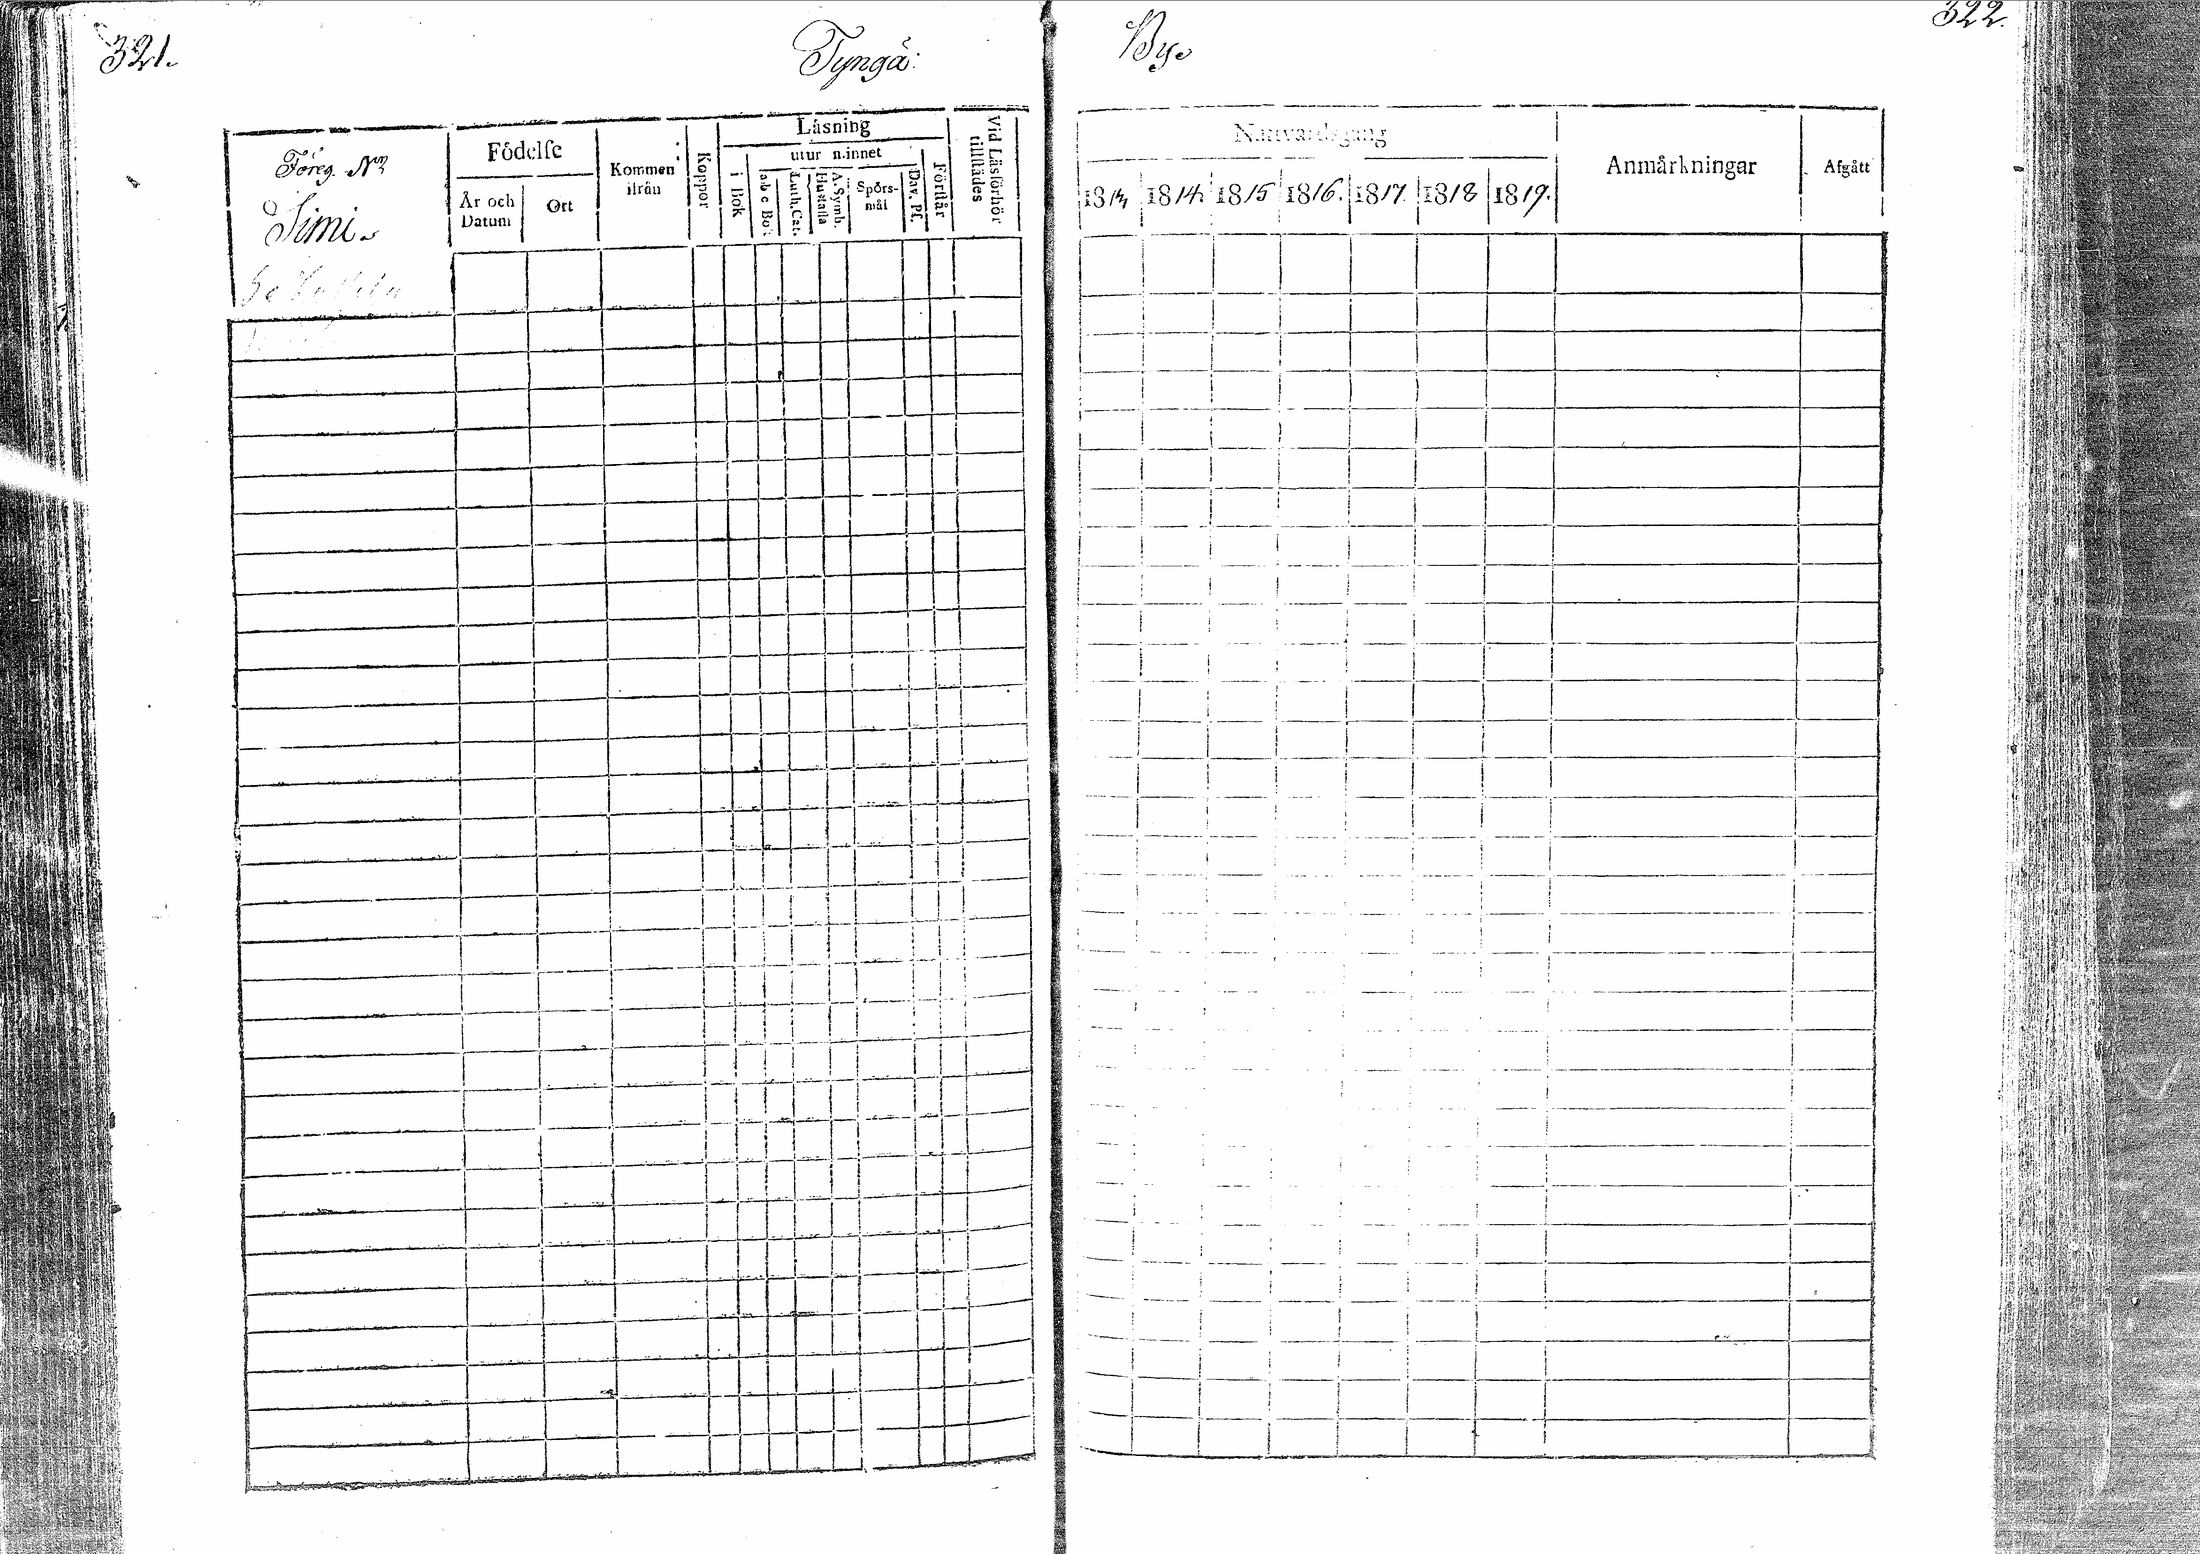 321.
Tyngä:
By.
322.
Föreg. Nn
Simi.
Födelse
År och Datum
Ort
Kommen ifrån
Koppor
Läsning
i Bok
utur minnet
a b c Bok
Luth. Cat.
Hustafla
A. Symb.
Spörsmål
Dav. Ps.
Förstår
Vid Läsförhör tillstädes
Nattvardsgång
1813
1814
1815
1816.
1817.
1818
1819.
Anmärkningar
Afgått